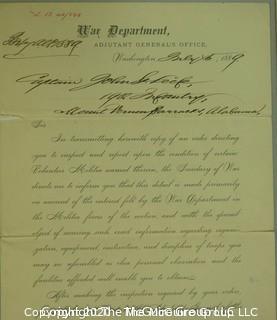 War Department,
ADJUTANT GENERAL'S OFFICE,
Washington, July 6, 1889
Captain John
Infantry,
Mount Vernon Barracks, Alabama.
Sir:
In transmitting herewith copy of an order directing
you to inspect and report upon the condition of certain
Volunteer Militia named therein, the Secretary of War
directs me to inform you that this detail is made primarily
on account of the interest felt by the War Department in
the Militia force of the nation, and with the special
object of securing such information regarding organi-
zation, equipment, instruction, and discipline of troops you
may as personal observation and the
facilities afforded will enable you to obtain.
After making the inspection required by your order,
Copyright 2020 - The McGuire Group LLC